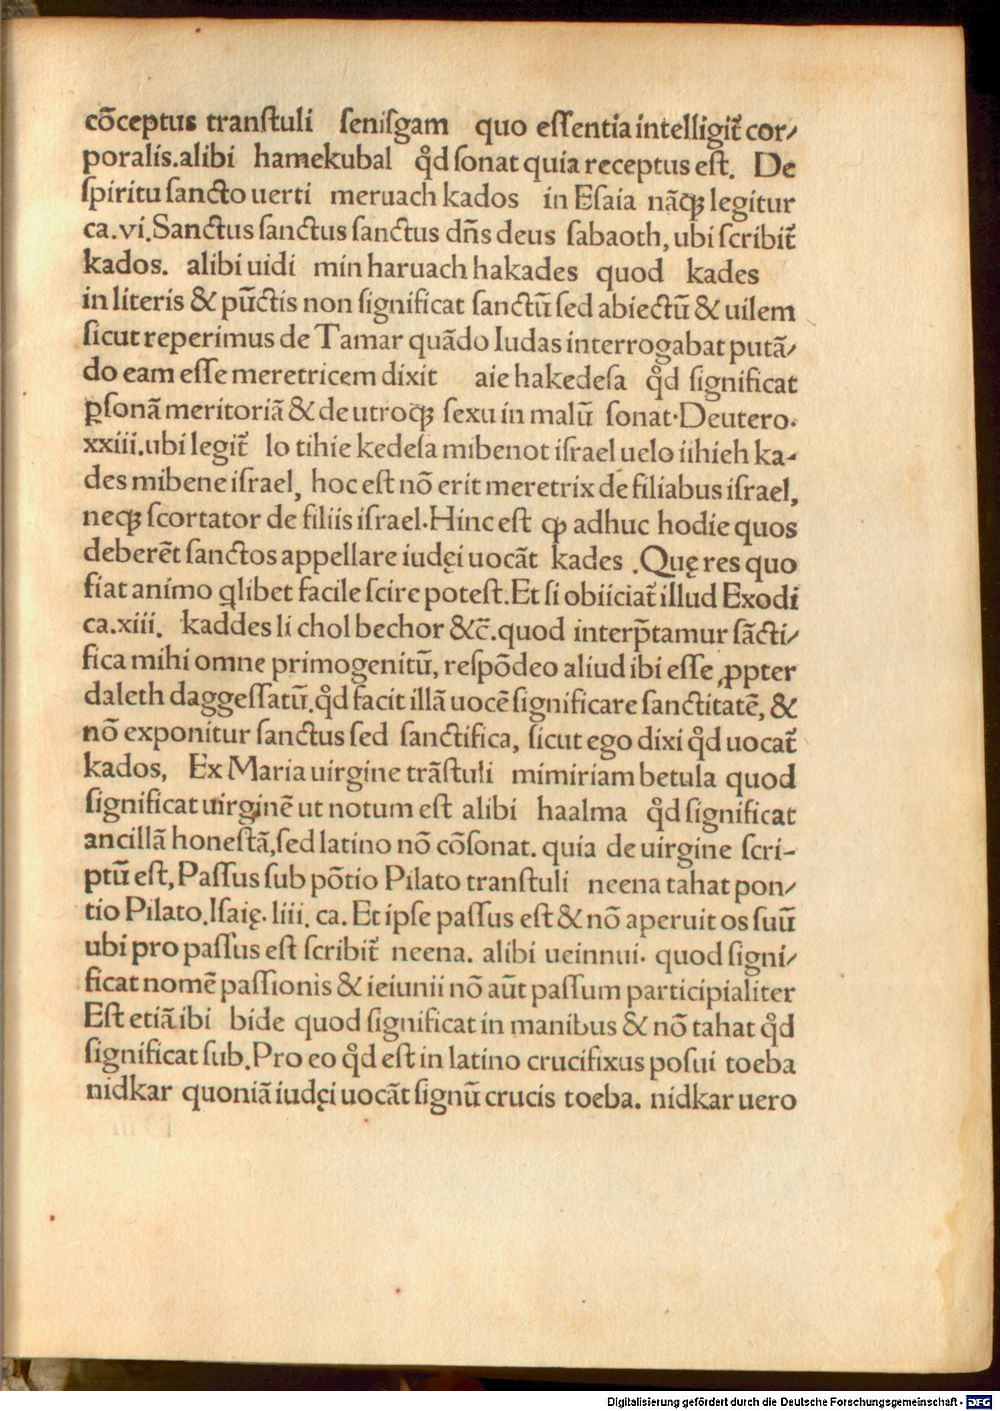 cōceptus tranſtuli ſeniſgam quo eſſentia intelligit᷑ cor⸗
poralis.alibi hamekubal qͦd ſonat quia receptus eſt. De
ſpiritu ſancto uerti meruach kados in Eſaia nāqꝫ legitur
ca.vi.Sanctus ſanctus ſanctus dn̄s deus ſabaoth, ubi ſcribit᷑
kados. alibi uidi min haruach hakades quod kades
in literis & pūctis non ſignificat ſanctū ſed abiectū & uilem
ſicut reperimus de Tamar quādo Iudas interrogabat putā⸗
do eam eſſe meretricem dixit aie hakedeſa qͦd ſignificat
ꝑſonā meritoriā & de utroqꝫ ſexu in malū ſonat·Deutero.
xxiii.ubi legit᷑ lo tihie kedeſa mibenot iſrael uelo iihieh ka⸗
des mibene iſrael, hoc eſt nō erit meretrix de filiabus iſrael,
neqꝫ ſcortator de filiis iſrael.Hinc eſt ꝙ adhuc hodie quos
deberēt ſanctos appellare iudęi uocāt kades .Quę res quo
fiat animo q̄libet facile ſcire poteſt.Et ſi obiiciat᷑ illud Exodi
ca.xiii. kaddes li chol bechor &c̄.quod interp̄tamur ſācti⸗
fica mihi omne primogenitū, reſpōdeo aliud ibi eſſe ꝓpter
daleth daggeſſatū.qͦd facit illā uocē ſignificare ſanctitatē, &
nō exponitur ſanctus ſed ſanctifica, ſicut ego dixi qͦd uocat᷑
kados, Ex Maria uirgine trāſtuli mimiriam betula quod
ſignificat uirginē ut notum eſt alibi haalma qͦd ſignificat
ancillā honeſtā,ſed latino nō cōſonat. quia de uirgine ſcri-
ptū eſt, Paſſus ſub pōtio Pilato tranſtuli neena tahat pon⸗
tio Pilato.Iſaię. liii. ca. Et ipſe paſſus eſt & nō aperuit os ſuū
ubi pro paſſus eſt ſcribit᷑ neena. alibi ueinnui. quod ſigni⸗
ficat nomē paſſionis & ieiunii nō aūt paſſum participialiter
Eſt etiā ibi bide quod ſignificat in manibus & nō tahat qͦd
ſignificat ſub.Pro eo qͦd eſt in latino crucifixus poſui toeba
nidkar quoniā iudęi uocāt ſignū crucis toeba. nidkar uero
Digitalisierung gefördert durch die Deutsche Forschungsgemeinschaft - DFG